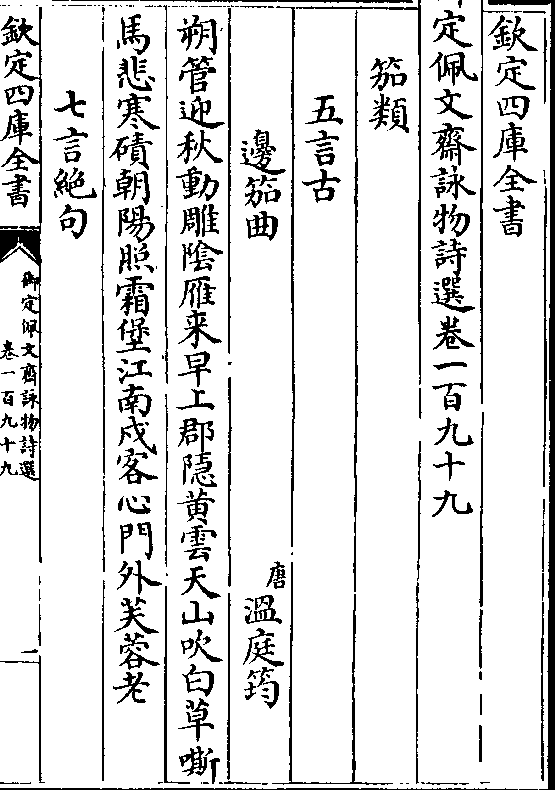 欽定四庫全書
定佩文齋詠物詩選卷一百九十九
笳類
五言古
邊笳曲
唐
溫庭筠
朔管迎秋動雕陰雁来早上郡隠黄雲天山吹白草嘶
馬悲寒磧朝陽照霜堡江南戍客心門外芙蓉老
七言絶句
欽定四庫全書
御定佩文齋詠物詩選
卷一百九十九
一